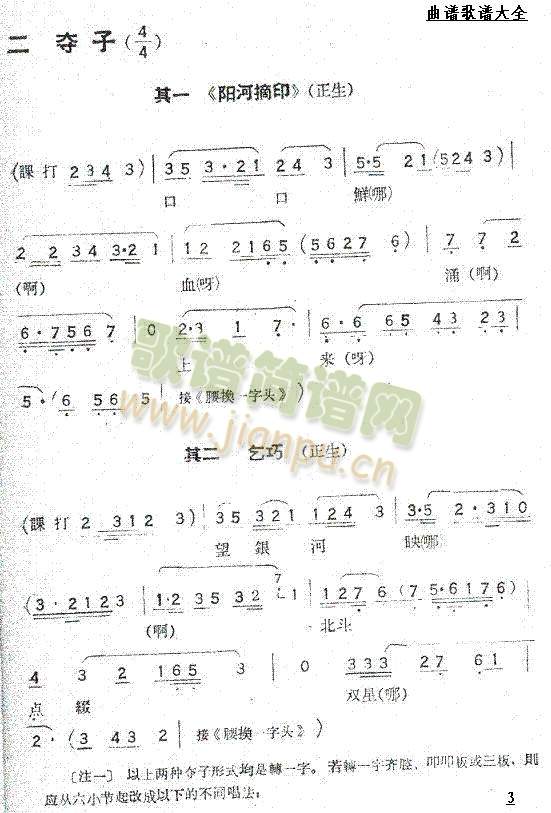 曲谱歌谱大全
二 夺子(4/4)
其一 《阳河摘印》(正生)
(課打 2 3 4 3) | 3 5 3·2 1 2 4 3 | 5·5 2 1 (5 2 4 3) |
口 口 鮮(哪)
2 2 3 4 3·2 1 | 1 2 2 1 6 5 (5 6 2 7 6) | 7 7 2
(啊) 血(呀) 涌(啊)
6·7 5 6 7 | 0 2·3 1 7 | 6·6 6 5 4 3 2 3
上 来(呀)
5·(6 5 6 5 接《腰換一字头》)
歌谱简谱网
www.jianpu.cn
其二 乞巧 (正生)
(課打 2 3 1 2 3) | 3 5 3 2 1 1 2 4 3 | 3·5 2·3 1 0
望 銀 河 映(哪)
(3·2 1 2 3 | 1·2 3 5 3 2 2 7 1 | 1 2 7 6 (7 5·6 1 7 6)
(啊) 北斗
4 3 2 1 6 5 3 | 0 3 3 3 2 7 6 1 |
点 綴 双星(哪)
2·(3 4 3 2 | 接《腰換一字头》)
〔注一〕 以上两种夺子形式均是轉一字。若轉一字齐腔、叩叩板或三板，則
应从六小节起改成以下的不同唱法：
3